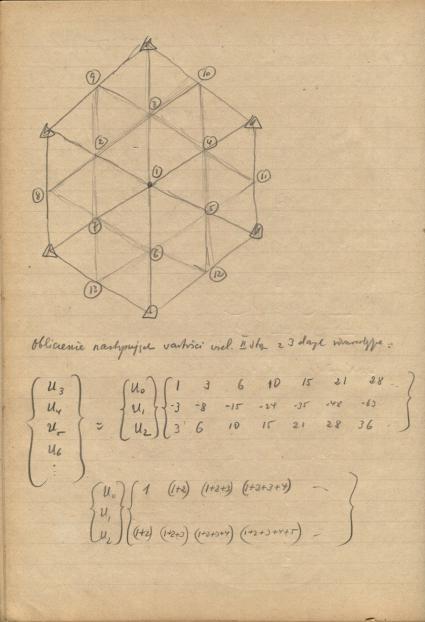 9
10
3
2
4
1
8
11
5
7
6
12
13
Obliczenie następując wartości wiel. II st. z 3 danych :
U3
U4
U5
U6
⋮
= { U0 U1 U2 }
1 3 6 10 15 21 28 ..
-3 -8 -15 -24 -35 -48 -63
3 6 10 15 21 28 36 ..
U0 1 (1+2) (1+2+3) (1+2+3+4) ...
U1
U2 (1+2) (1+2+3) (1+2+3+4) (1+2+3+4+5) ..